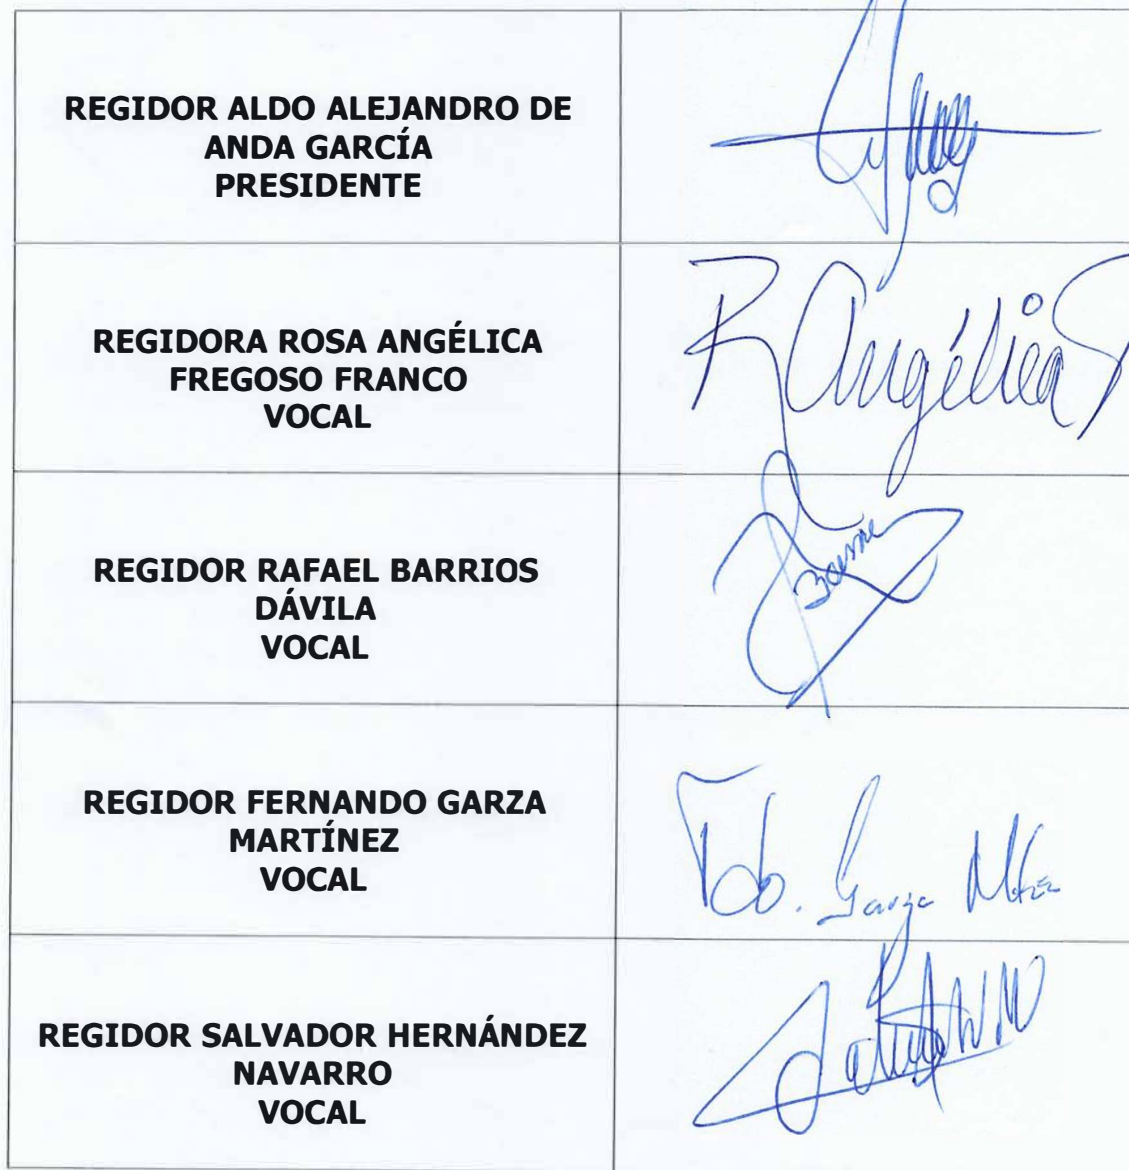 REGIDOR ALDO ALEJANDRO DE
ANDA GARCÍA
PRESIDENTE
REGIDORA ROSA ANGÉLICA
FREGOSO FRANCO
VOCAL
R Angélica
REGIDOR RAFAEL BARRIOS
DÁVILA
VOCAL
REGIDOR FERNANDO GARZA
MARTÍNEZ
VOCAL
Fdo. Garza
REGIDOR SALVADOR HERNÁNDEZ
NAVARRO
VOCAL